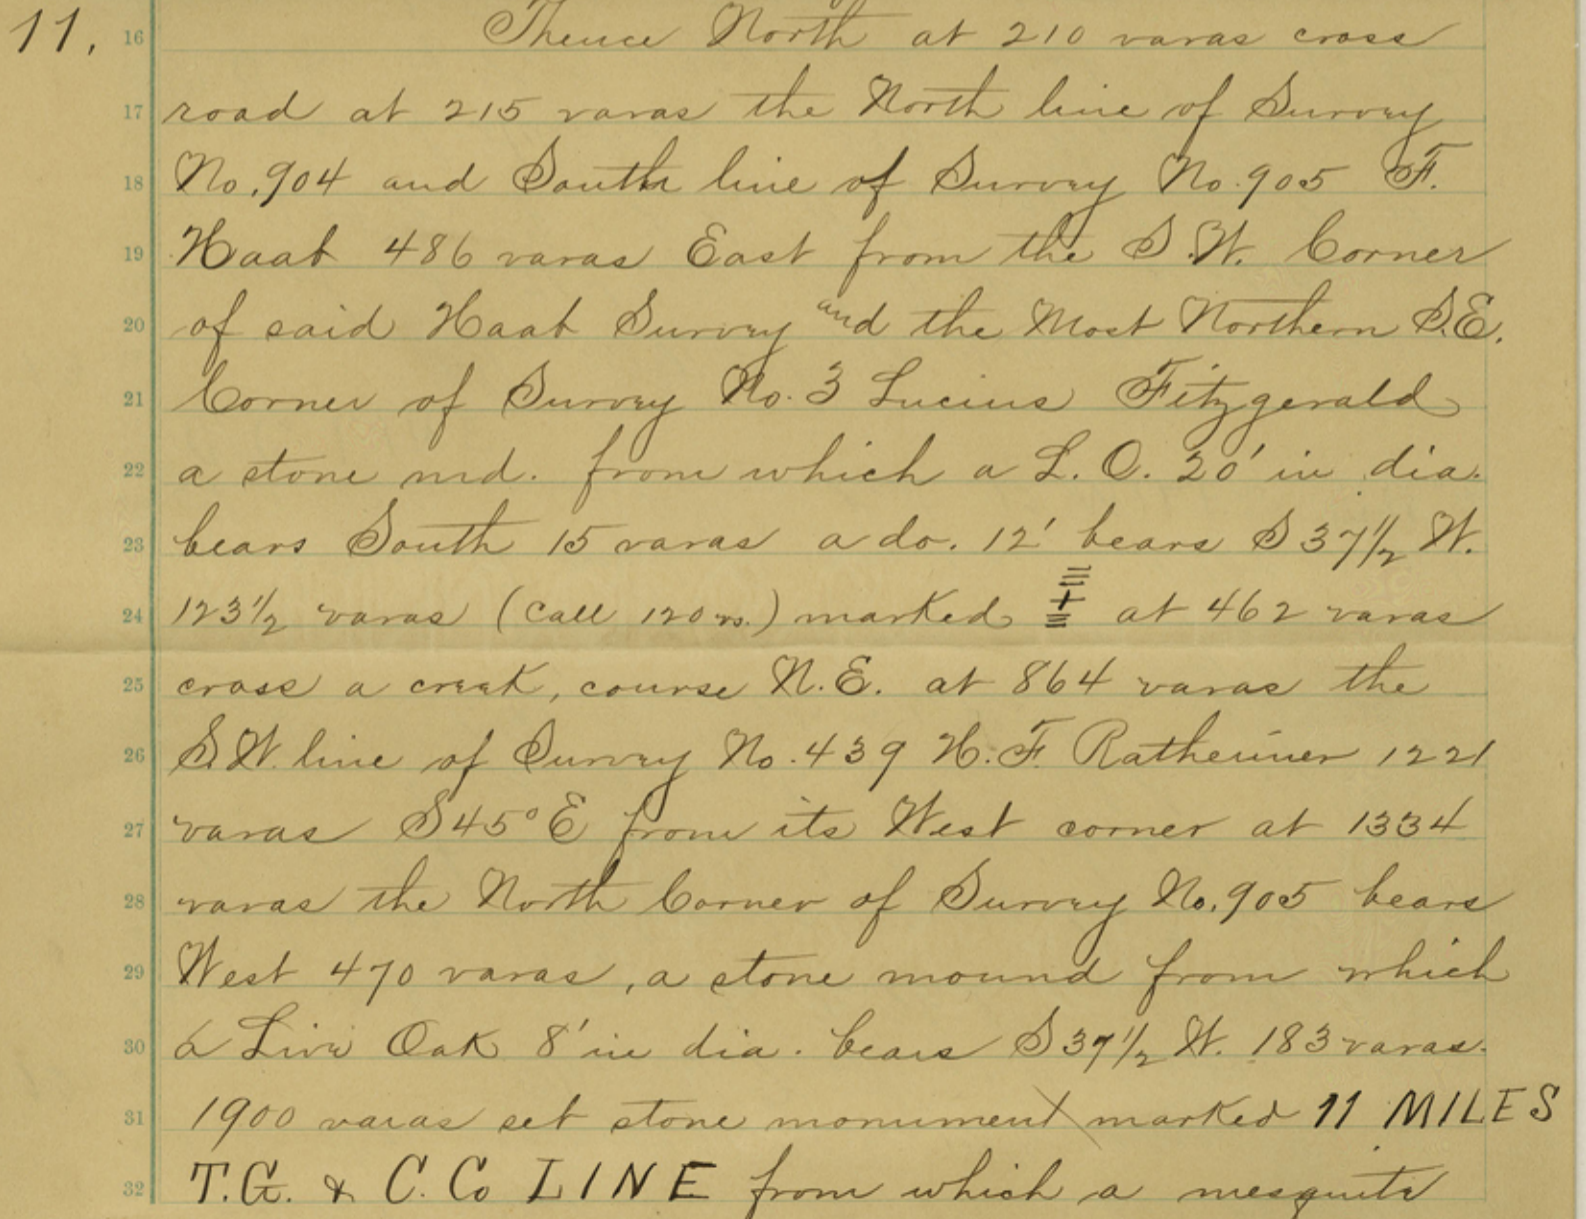 11. 16 Thence North at 210 varas cross
17 road at 215 varas the North line of Survey
18 No. 904 and South line of Survey No. 905 F.
19 Haab 486 varas East from the S.W. Corner
20 of said Haab Survey and the Most Northern S.E.
21 Corner of Survey No. 3 Lucius Fitzgerald
22 a stone md. from which a L. O. 20' in dia.
23 bears South 15 varas a do. 12' bears S 37 1/2 W.
24 123 1/2 varas (Call 120 vs.) marked at 462 varas
25 cross a creek, course N.E. at 864 varas the
26 S.W. line of Survey No. 439 H. F. 1221
27 varas S 45° E from its West corner at 1334
28 varas the North Corner of Survey No. 905 bears
29 West 470 varas, a stone mound from which
30 a Live Oak 8' in dia. bears S 37 1/2 W. 183 varas.
31 1900 varas set stone monument marked 11 MILES
32 T.G. & C. Co LINE from which a mesquite